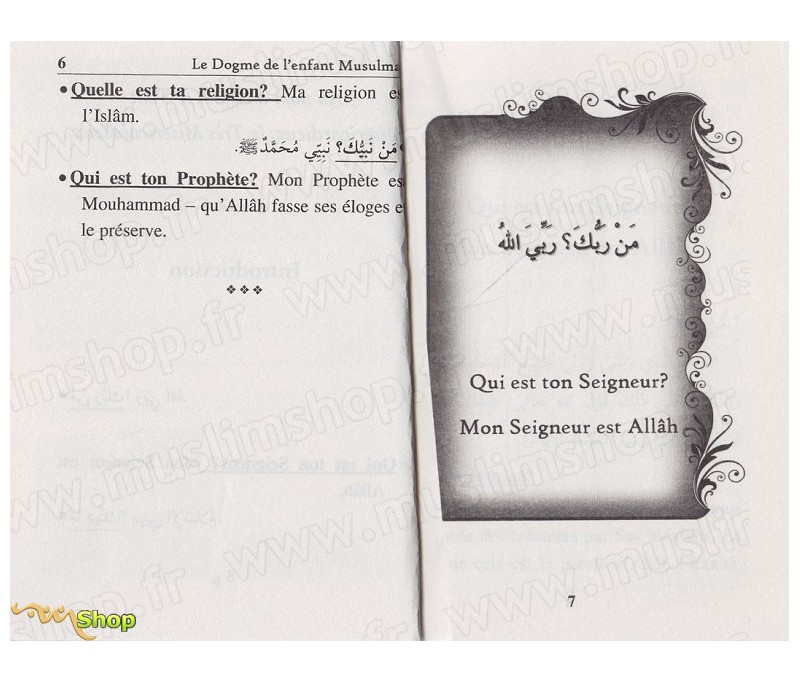 6
Le Dogme de l'enfant Musulma
• Quelle est ta religion? Ma religion es
l'Islâm.
• مَنْ نَبِيُّكَ؟ نَبِيِّي مُحَمَّدٌ ﷺ.
• Qui est ton Prophète? Mon Prophète es
Mouhammad – qu'Allâh fasse ses éloges e
le préserve.
❖❖❖
مَنْ رَبُّكَ؟ رَبِّيَ اللهُ
Qui est ton Seigneur?
Mon Seigneur est Allâh
7
www.muslimshop.fr
Shop